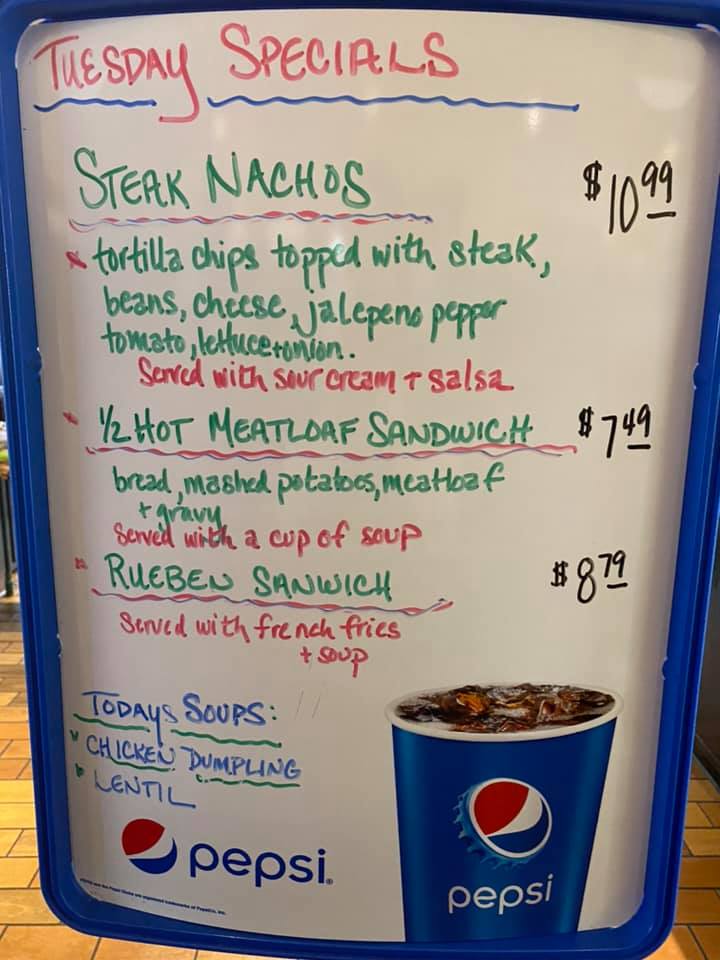 TUESDAY SPECIALS
STEAK NACHOS $10.99
tortilla chips topped with steak,
beans, cheese, jalepeno pepper
tomato, lettuce + onion.
Served with sour cream + salsa
1/2 HOT MEATLOAF SANDWICH $7.49
bread, mashed potatoes, meatloaf
+ gravy
Served with a cup of soup
RUEBEN SANWICH $8.79
Served with french fries
+ soup
TODAYS SOUPS:
CHICKEN DUMPLING
LENTIL
pepsi.
pepsi